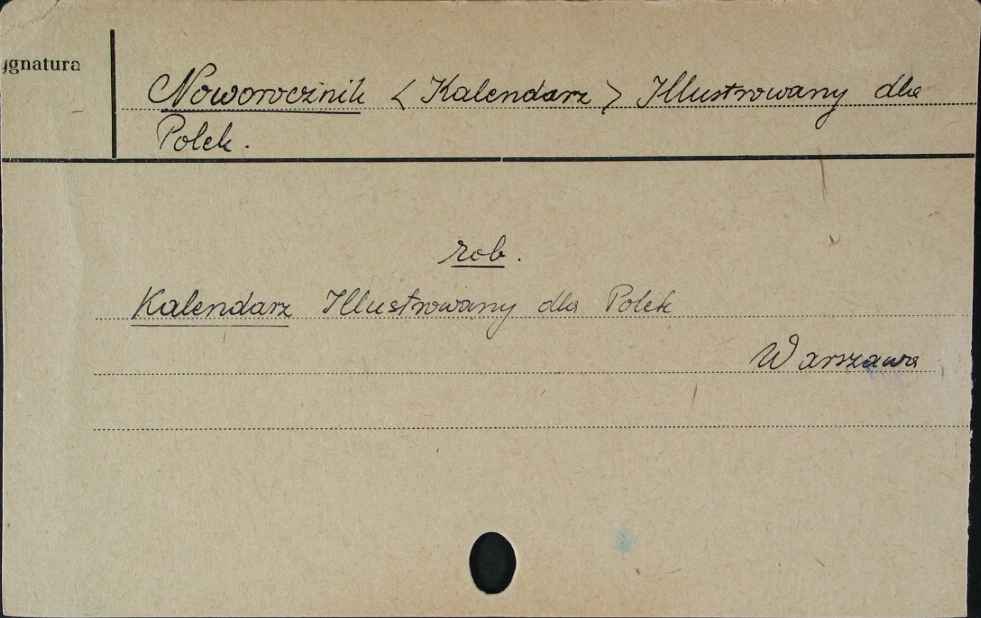 ygnatura
Noworocznik < Kalendarz > Illustrowany dla
Polek.
zob.
Kalendarz Illustrowany dla Polek
Warszawa